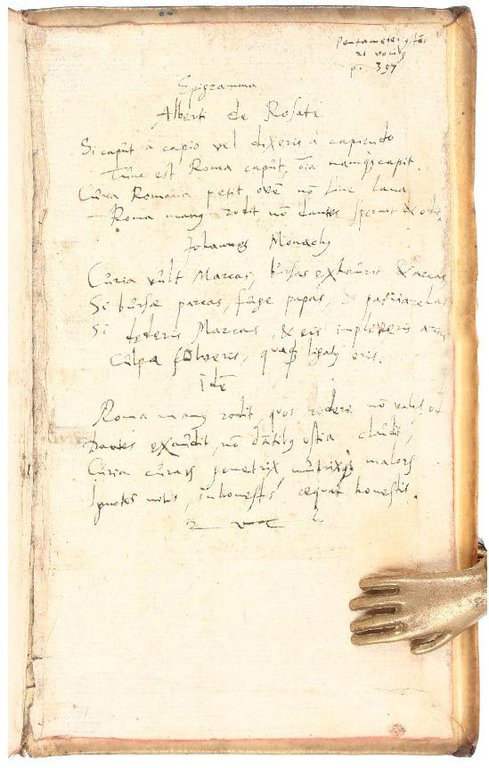 Pentameter
p. 397
Epigramma
Alberti de Rosate
Si caput a capio vel dixeris a capiendo
Tunc est Roma caput, oia namq; capit.
Curia Romana petit ovem no sine lana
Roma manus rodit, no dantes spernit & odit
Johannes Monachus
Curia vult Marcas, bursas exhaurit & arcas
Si bursae parcas, fuge papas, & patriarchas
Si dederis Marcas, & eis impleveris arcas
Culpa solveris, quaq; ligatus eris.
Ide
Roma manus rodit, quos rodere non valet, odit
Dantes exaudit, no dantibus ostia claudit,
Curia curarum genetrix nutrixq; malorum
Ignotos notis, inhonestis aequat honestis.